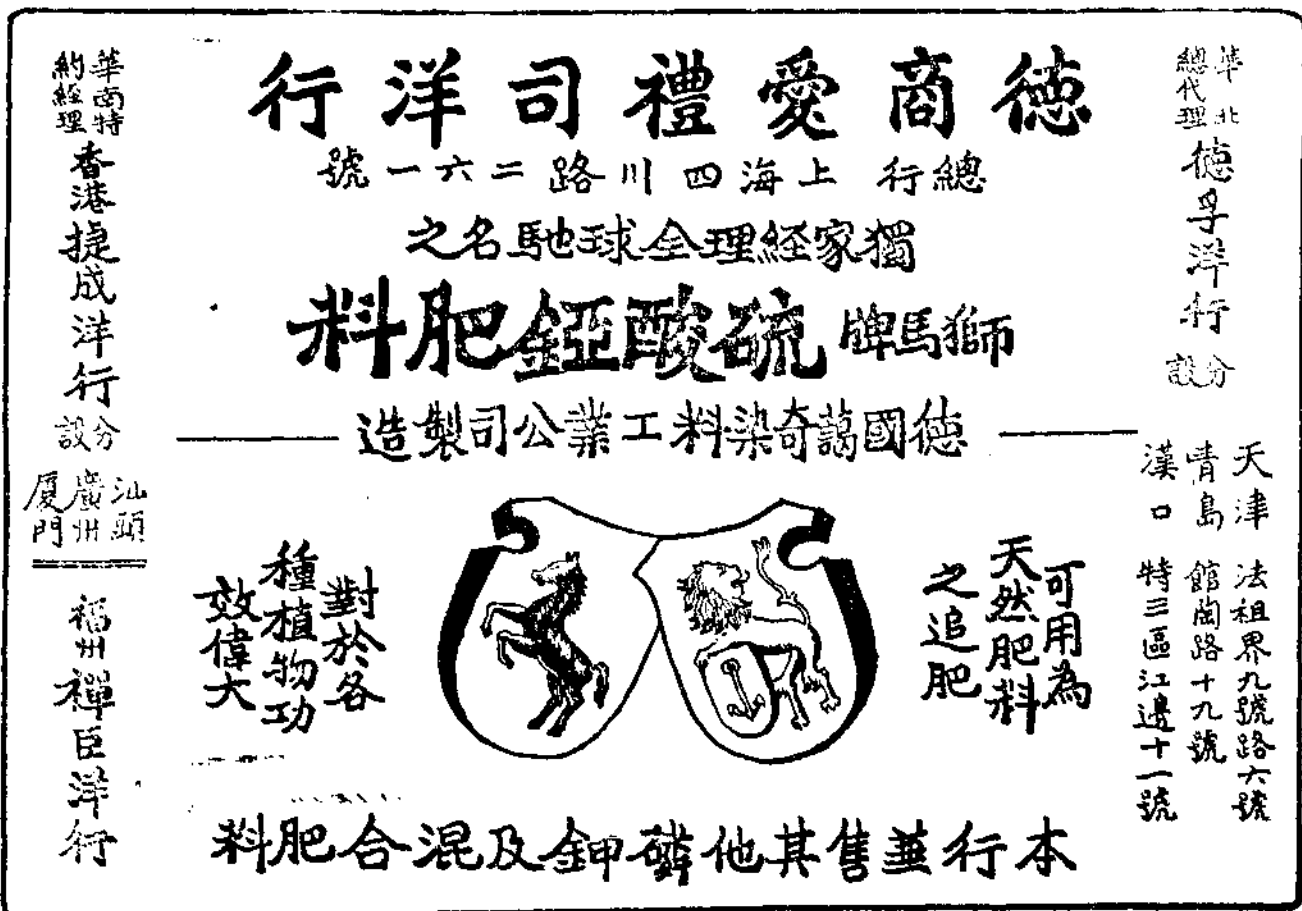 德商愛禮司洋行
總行 上海四川路二六一號
獨家經理全球馳名之
獅馬牌 硫酸錏肥料
德國藹奇染料工業公司製造
可用為
天然肥料
之追肥
對於各
種植物功
效偉大
本行兼售其他燐鉀及混合肥料
華北
總代理
德孚洋行
分設
天津 法租界九號路六號
青島 館陶路十九號
漢口 特三區江邊十一號
華南特
約經理
香港捷成洋行
分設
汕頭
廣州
厦門
福州禪臣洋行